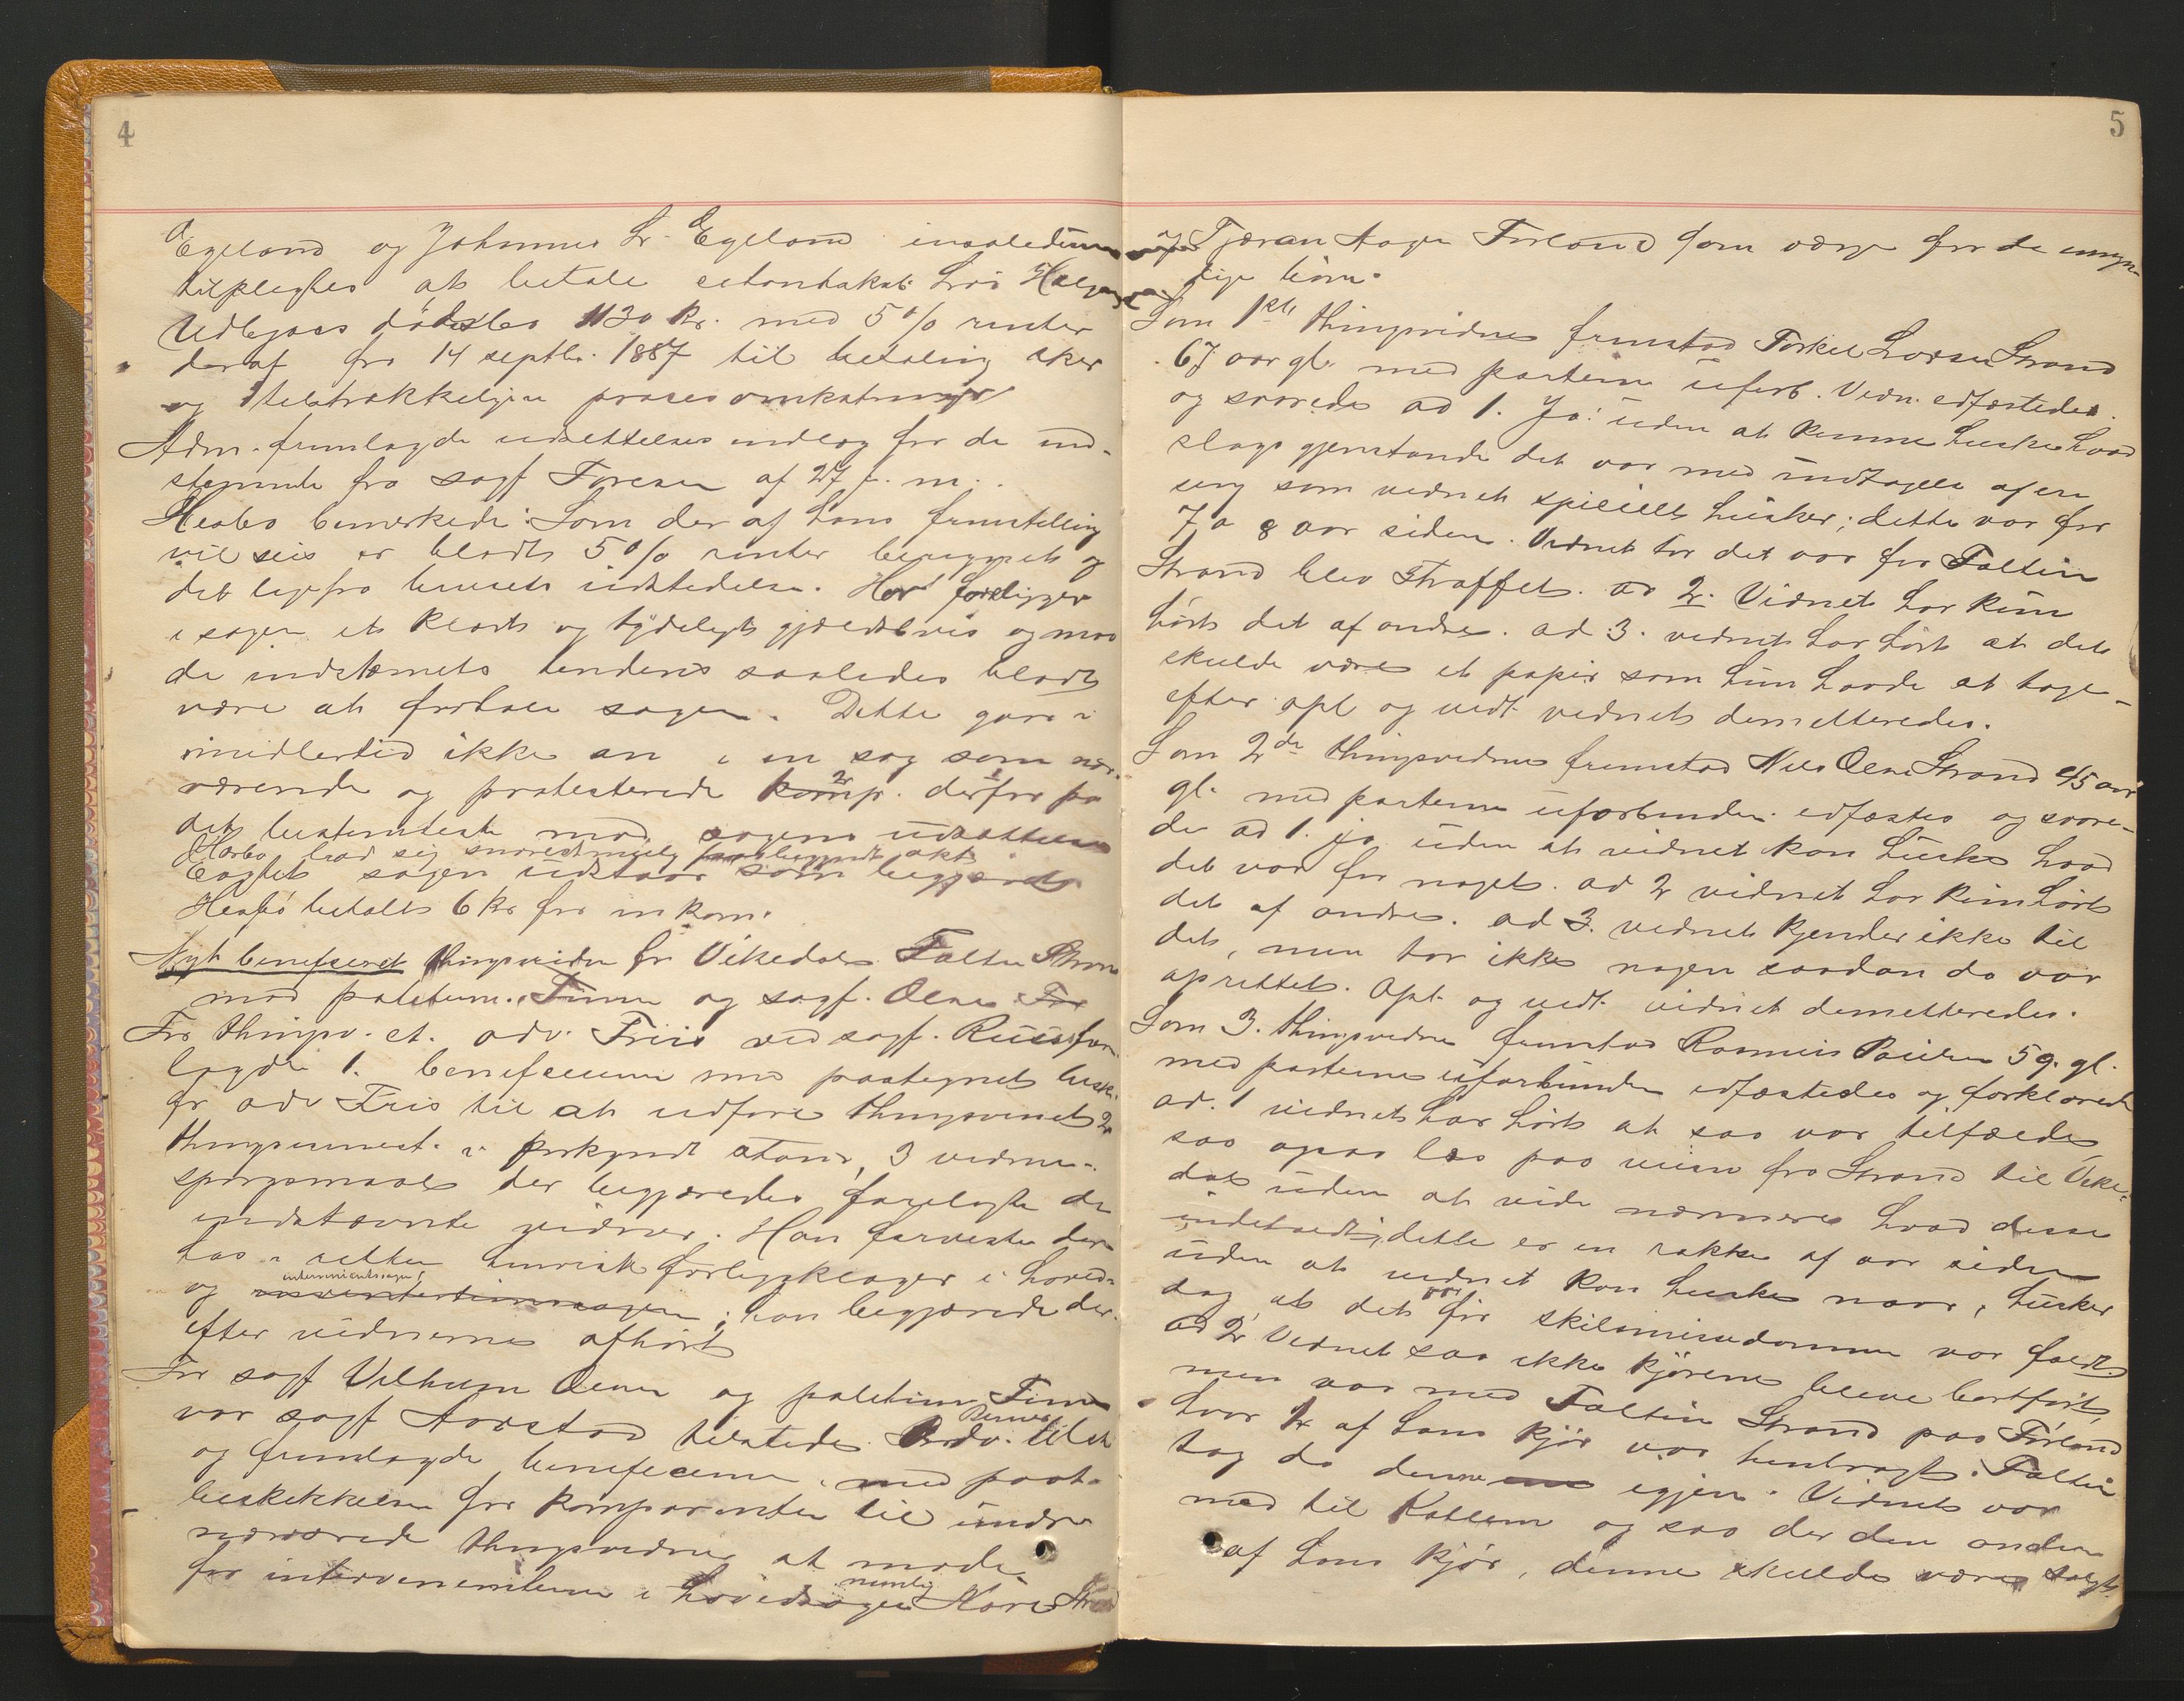 4
Egeland og Johannes Lr. Egeland insolidum
tilpligtes at betale citantskab: Lars Helges
Udbjoas dødsbo 1130 Kr. med 5% renter
deraf fra 14 septbr. 1887 til betaling sker
og tilstrækkelige procesomkostninger
Adm. fremlagde udsættelses indlæg for de ind-
stevnte fra sagf Toresen af 27 f. m.
Heabø bemerkede: Som der af hans fremstilling
vil sees er blodt 5% renter beregnet og
det ligefra bevisets udstedelse. Her foreligger
i sagen et klart og tydeligt gjældsbevis og maa
de indstevntes tendens saaledes blodt
være at forhale sagen. Dette gaar i
imidlertid ikke an i en sag som nær-
værende og protesterede komp. derfor paa
det bestemteste mod sagens udsættelse
Heabø bad sig snarest mulig beskrevet akt
Eragtet sagen udstaar som begjæret
Heabø betalte 6 kr for inkam.
Nyt beneficeret thingsvidne fr Vikedal Faltin Strand
mod paltium. Finne og sagf. Olsen
For thingsv. ct. adv. Friis ved sagf. Russ frem-
lagde 1. beneficium med paategnet besk.
for adv Friis til at udføre thingsvidnet 2
thingsvidnest. i forkyndt stand, 3 vidne-
spørgsmaal der begjæredes forelagte de
indstævnte vidner. Han forventer der
hos i retten temoigt forligsklager i hoved-
og interventionssagen; han begjærede der-
efter vidnerne afhørt
For sagf Vilhelm Olsen og paltium Finne
var sagf Aarstad tilstede. Berner tilst
og fremlagde beneficium med paat.
beskikkelse for komparenten til under
nærværende thingsvidne at møde
for intervenienterne i hovedsagen nemlig Kari Strand
5
og Tjeran Aagen Førland som værge for de umyn-
dige børn.
Som 1ste thingsvidne fremstod Torkel Larsen Strand
67 aar gl. med parterne uforb. Vidn. edfæstedes.
og svarede ad 1. Ja! uden at kunne huske hvad
slags gjenstande det var med undtagelse af en
seng som vidnet specielt husker; dette var for
7 a 8 aar siden. Vidnet tror det var før Faltin
Strand blev straffet. ad 2. Vidnet har kun
hørt det af andre. ad 3. vidnet har hørt at det
skulde være et papir som hun havde at tage
efter opl og vedt vidnet demitteredes.
Som 2de thingsvidne fremstod Nils Olsen Strand 45 aar
gl. med parterne uforbunden. edfæstes og svare-
de ad 1. ja uden at vidnet kan huske hvad
det var for noget. ad 2 vidnet har kun hørt
det af andre. ad 3. vidnet kjender ikke til
det, men tror ikke nogen saadan da var
oprettet. Opl. og vedt. vidnet demitteredes.
Som 3. thingsvidne fremstod Rasmus Poulsen 59. gl.
med parterne uforbunden edfæstedes og forklarede
ad. 1 vidnet har hørt at saa var tilfælde,
saa ogsaa læs paa veien fra Strand til Vike-
dal uden at vide nærmere hvad desse
indeholdt; dette er en række af aar siden
uden at vidnet kan huske naar, husker
dog at det var før skilsmissedommen var faldt.
ad 2 Vidnet saa ikke kjørene bleve bortført,
men var med Faltin Strand paa Førland
hvor 1 af hans kjør var henbragt. Faltin
tog da denne igjen. Vidnet var
med til Kallem og saa der den anden
af hans kjør, denne skulde være solgt